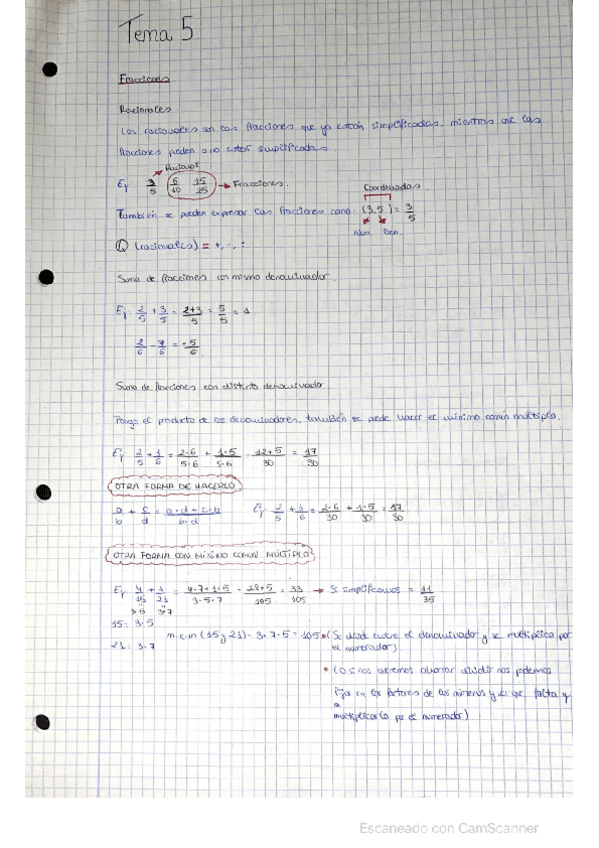 Tema 5.
Fracciones
Racionales
Los racionales son las fracciones que ya están simplificadas, mientras que las
fracciones pueden o no estar simplificadas.
Racional
Ej 3/5 6/10 15/25 → Fracciones.
Coordenadas
También se pueden expresar las fracciones como (3,5) = 3/5
Num Den
Q (racionales) = +, -, ·, :
Suma de fracciones con mismo denominador.
Ej. 2/5 + 3/5 = 2+3/5 = 5/5 = 1
2/6 - 7/6 = -5/6
Suma de fracciones con distinto denominador
Pongo el producto de los denominadores, también se puede hacer el mínimo común múltiplo.
Ej 2/5 + 1/6 = 2·6/5·6 + 1·5/5·6 = 12+5/30 = 17/30
OTRA FORMA DE HACERLO
a/b + c/d = a·d + c·b/b·d Ej 2/5 + 1/6 = 2·6/30 + 1·5/30 = 17/30
OTRA FORMA CON MÍNIMO COMÚN MÚLTIPLO
Ej 4/15 + 1/21 = 4·7+1·5/3·5·7 = 28+5/105 = 33/105 → Si simplificamos = 11/35
3·5 3·7
15: 3·5
m.c.m (15 y 21) = 3·7·5 = 105 • (Se divide entre el denominador y se multiplica por
21: 3·7
el numerador).
• (O si nos queremos ahorrar dividir nos podemos
fijar en los factores de los números y el que falta
multiplicarlo por el numerador)